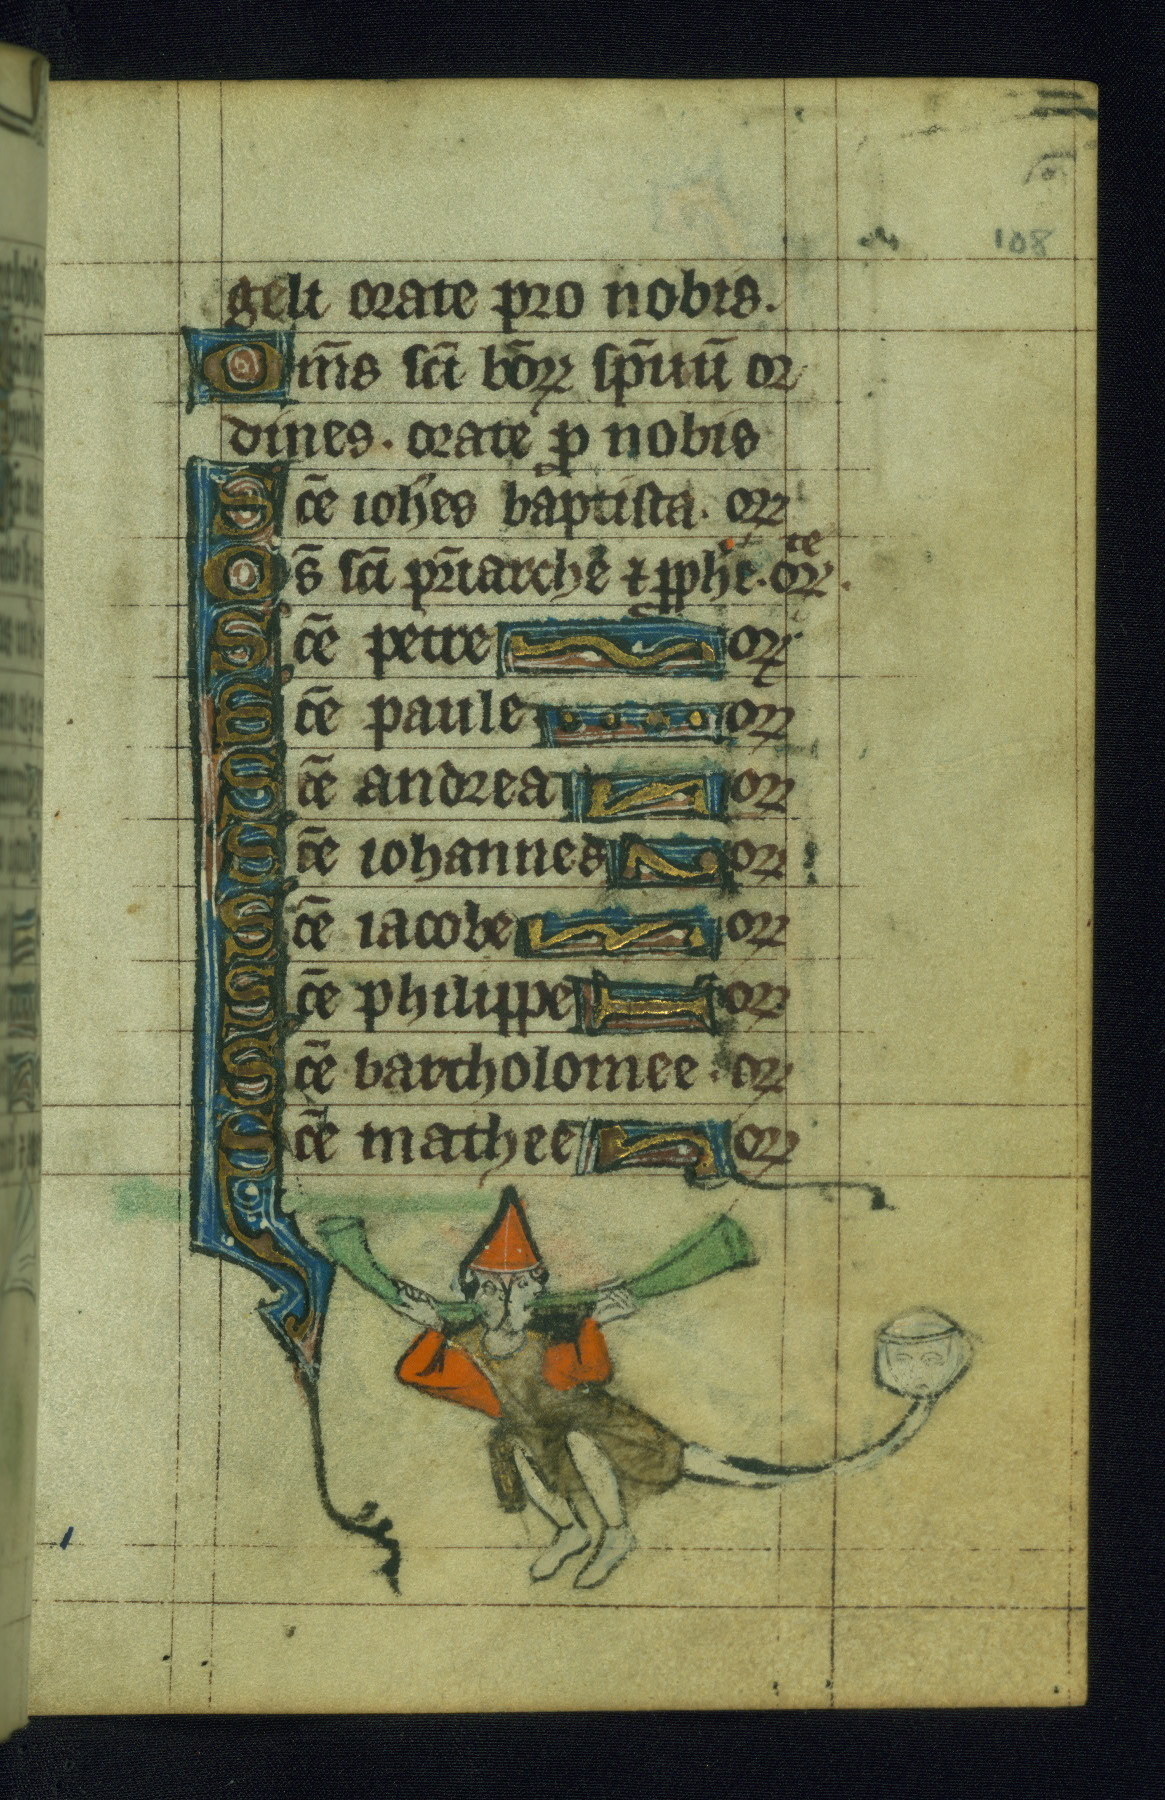 108
geli orate pro nobis.
Om̄s sc̄i bōꝝ sp̄uū or
dines. orate p nobis
Sc̄e ioh̄es baptista. orꝝ
Os̄ sc̄i pr̄iarche ⁊ ꝓph̄e. orꝝ te
Sc̄e petre orꝝ
Sc̄e paule orꝝ
Sc̄e andrea orꝝ
Sc̄e iohannes orꝝ
Sc̄e iacobe orꝝ
Sc̄e philippe orꝝ
Sc̄e bartholomee. orꝝ
Sc̄e mathee orꝝ